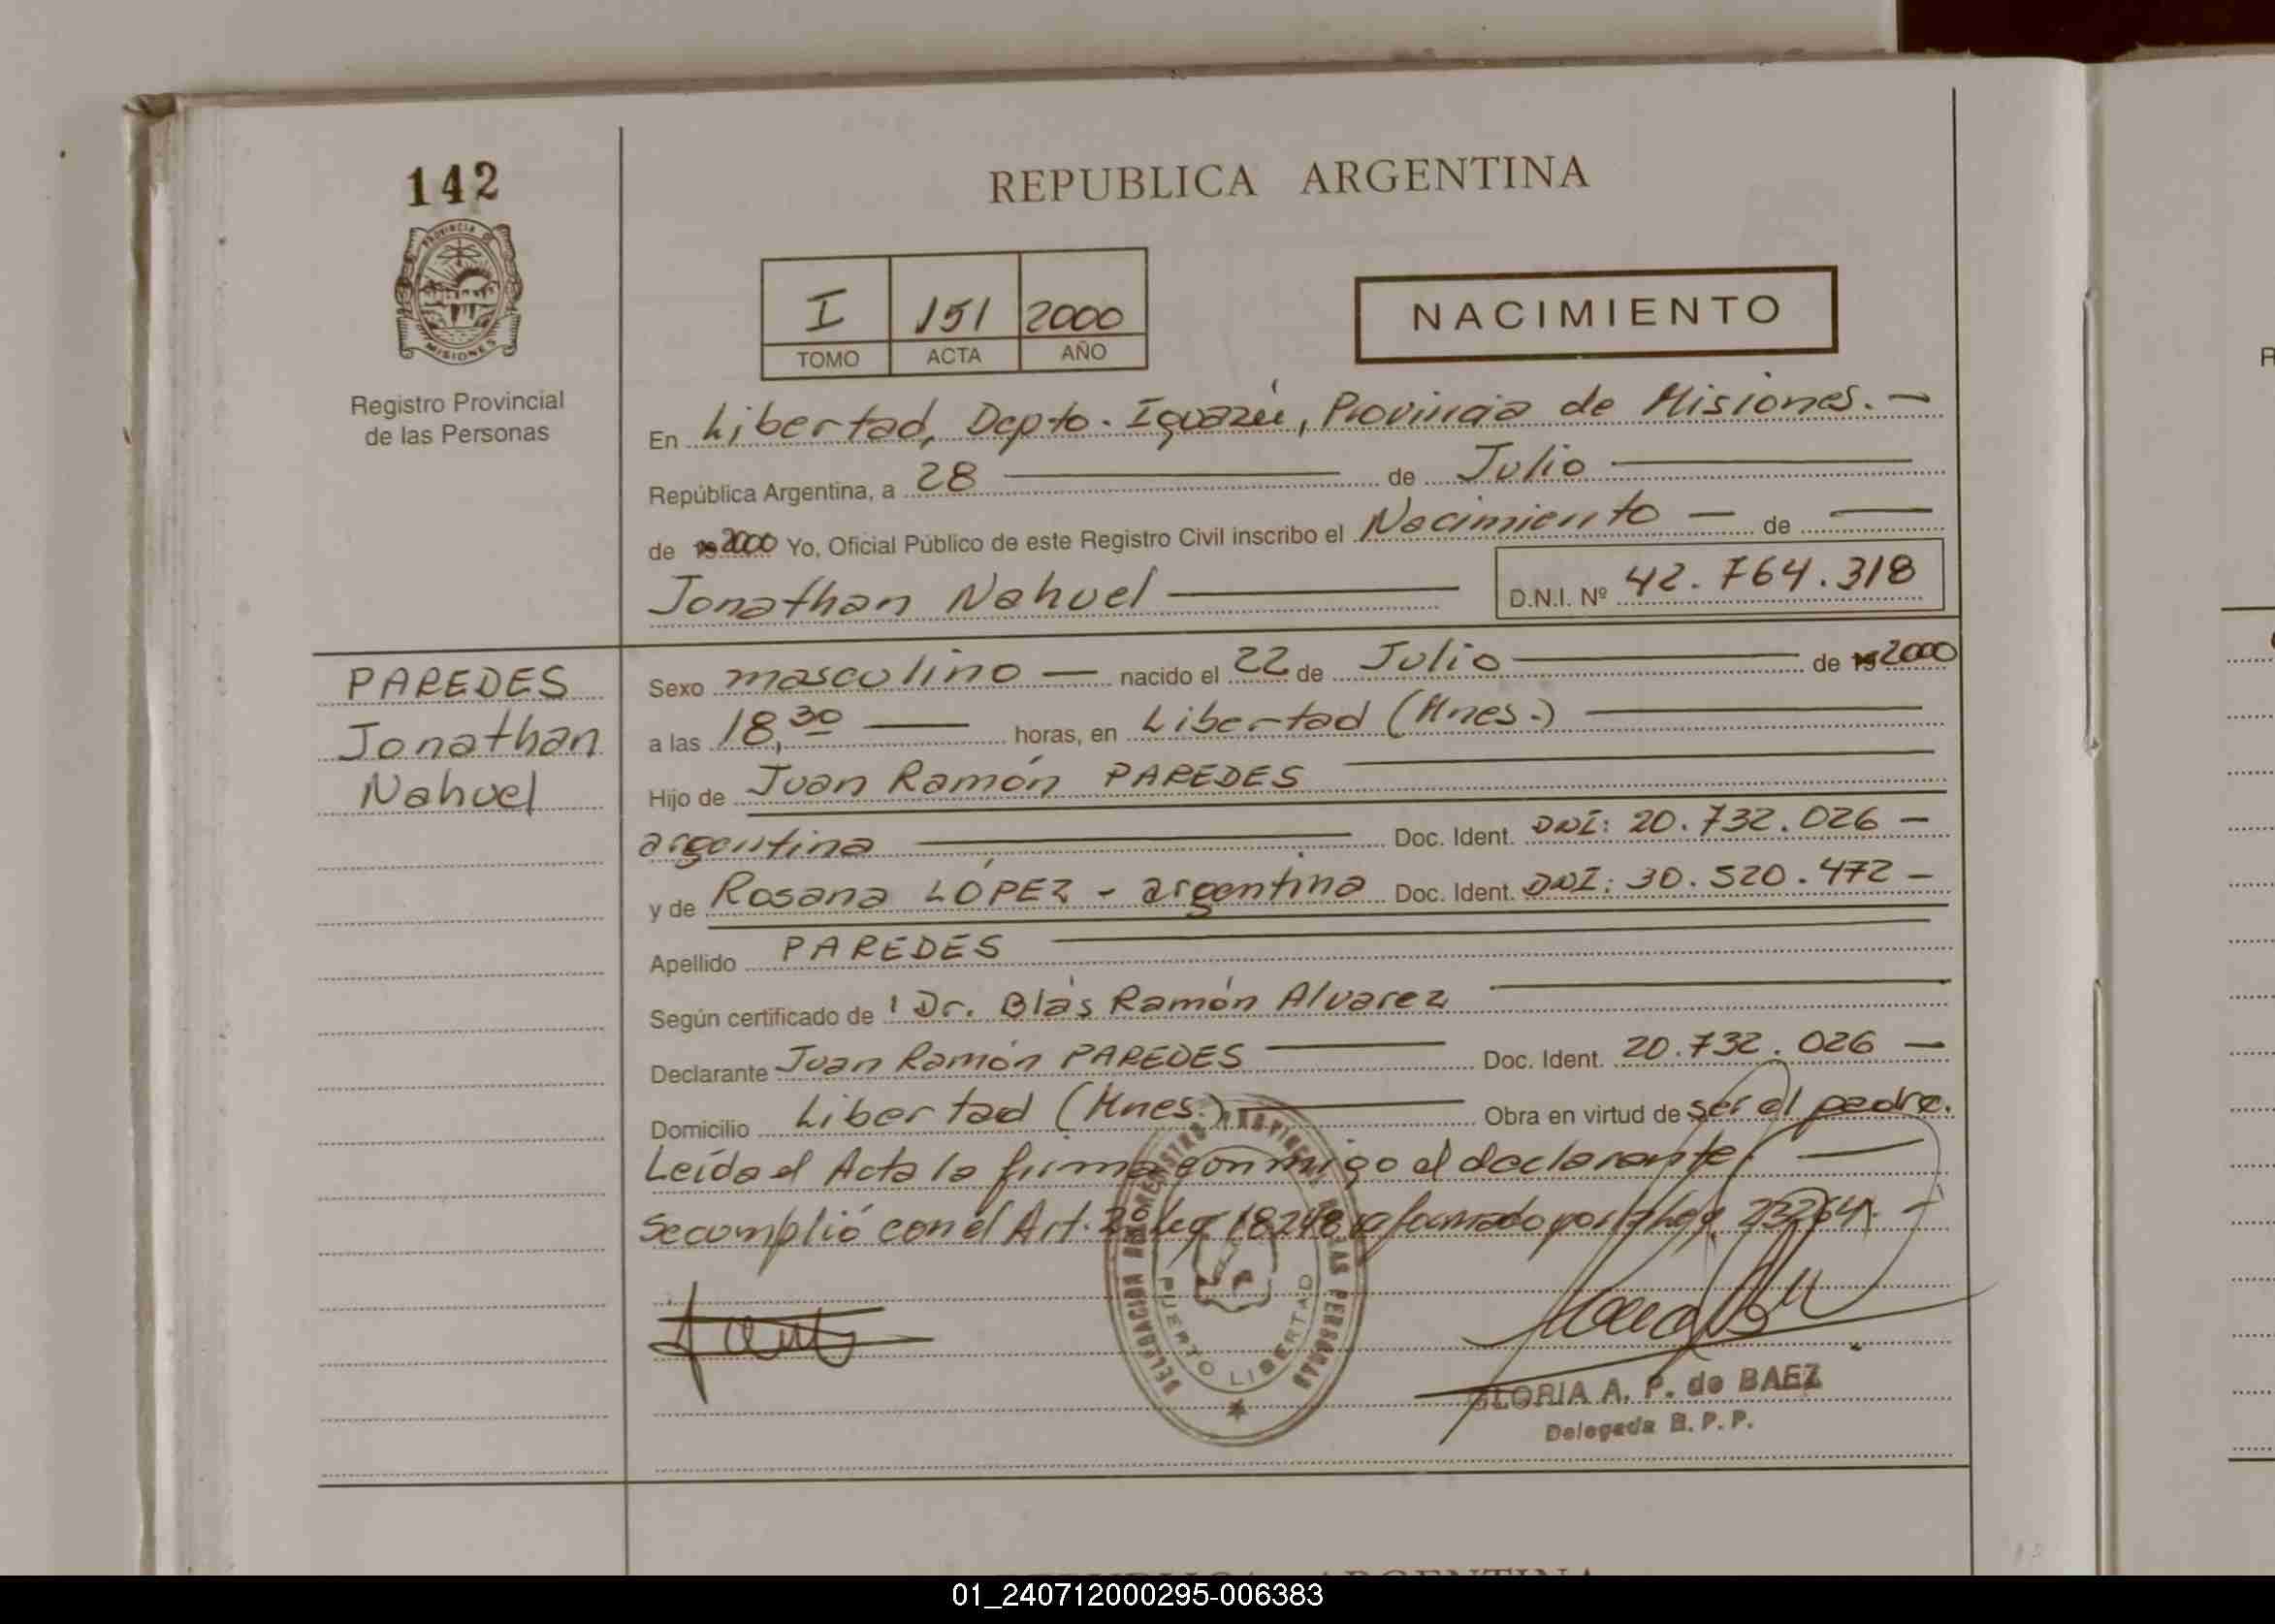 142
PROVINCIA DE
MISIONES
Registro Provincial
de las Personas
REPUBLICA ARGENTINA
I 151 2000
TOMO ACTA AÑO
NACIMIENTO
En Libertad, Depto. Iguazú, Provincia de Misiones. —
República Argentina, a 28 — de Julio —
de 19 2000 Yo, Oficial Público de este Registro Civil inscribo el Nacimiento — de —
Jonathan Nahuel — D.N.I. Nº 42.764.318
PAREDES
Jonathan
Nahuel
Sexo masculino — nacido el 22 de Julio — de 19 2000
a las 18,30 — horas, en Libertad (Mnes.) —
Hijo de Juan Ramón PAREDES —
argentina — Doc. Ident. DNI: 20.732.026 —
y de Rosana LÓPEZ - argentina Doc. Ident. DNI: 30.520.472 —
Apellido PAREDES —
Según certificado de Dr. Blás Ramón Alvarez —
Declarante Juan Ramón PAREDES — Doc. Ident. 20.732.026 —
Domicilio Libertad (Mnes.) — Obra en virtud de ser el padre.
Leída el Acta la firma conmigo el declarante. —
Se cumplió con el Art. 2º ley 18248 reformado por la ley 23264. —
DELEGACION REGISTRO PROVINCIAL DE LAS PERSONAS
PUERTO LIBERTAD
GLORIA A. P. de BAEZ
Delegada R. P. P.
REPUBLICA ARGENTINA
01_240712000295-006383